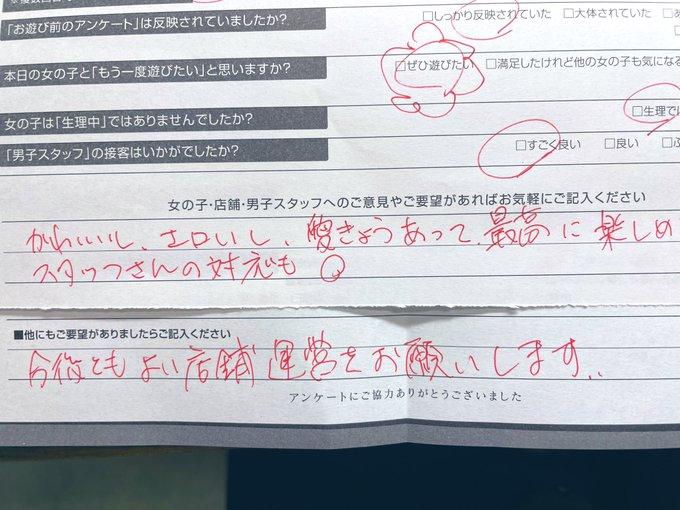 「お遊び前のアンケート」は反映されていましたか?
□しっかり反映されていた □大体されていた □あ
本日の女の子と「もう一度遊びたい」と思いますか?
□ぜひ遊びたい □満足したけれど他の女の子も気になる
女の子は「生理中」ではありませんでしたか?
□生理では
「男子スタッフ」の接客はいかがでしたか?
□すごく良い □良い □ふ
女の子・店舗・男子スタッフへのご意見やご要望があればお気軽にご記入ください
かわいいし、エロいし、愛きょうあって、最高に楽しめ
スタッフさんの対応も◯
■他にもご要望がありましたらご記入ください
今後ともよい店舗運営をお願いします..
アンケートにご協力ありがとうございました